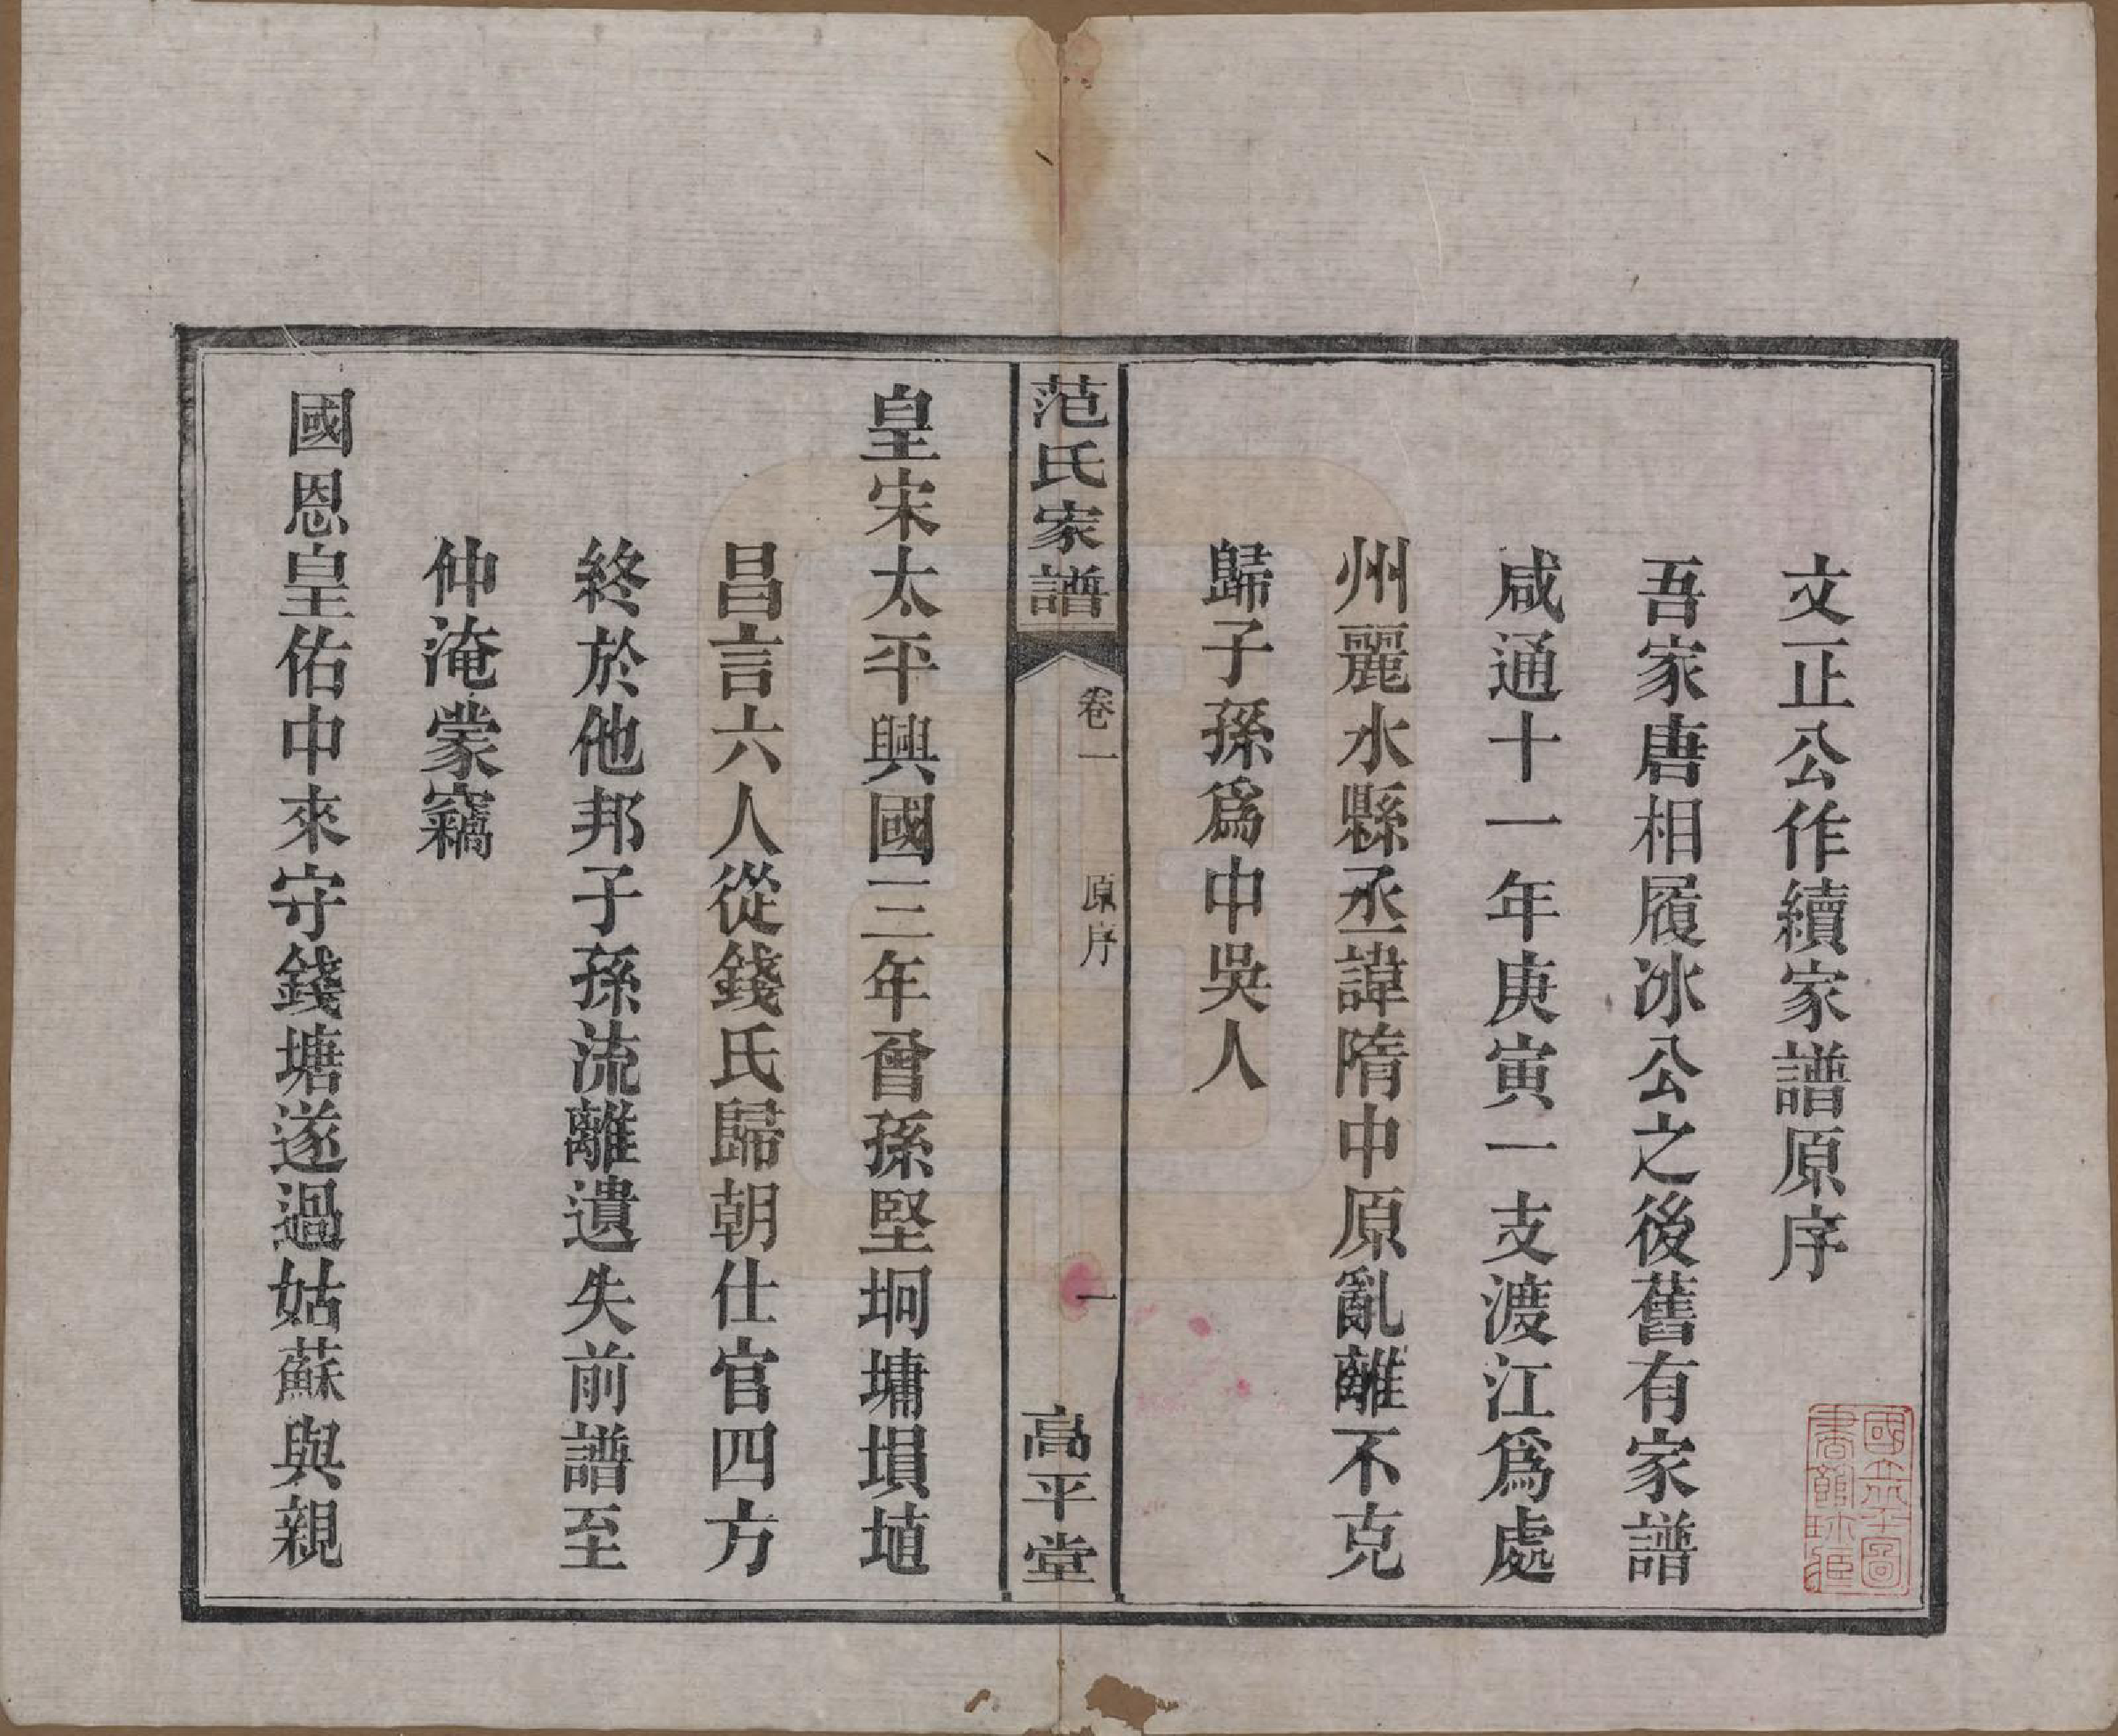 文正公作續家譜原序
吾家唐相履冰公之後舊有家譜
咸通十一年庚寅一支渡江爲處
州麗水縣丞諱隋中原亂離不克
歸子孫爲中吳人
范氏家譜
卷一
原序
一
高平堂
皇宋太平興國三年曾孫堅坰墉塤埴
昌言六人從錢氏歸朝仕官四方
終於他邦子孫流離遺失前譜至
仲淹蒙竊
國恩皇佑中來守錢塘遂過姑蘇與親
國立北平圖
書館珍藏